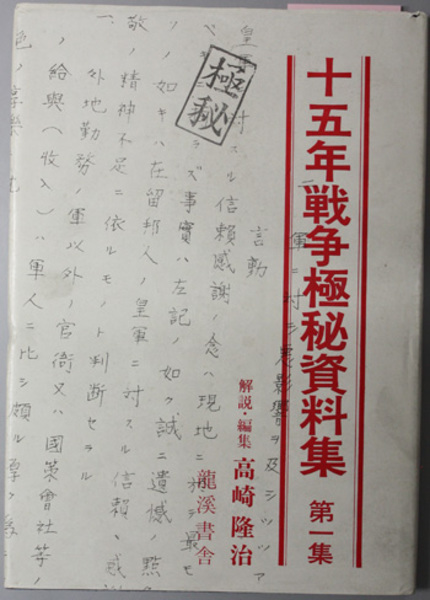 十五年戦争極秘資料集 第一集
解説・編集 高崎隆治
龍溪書舎
極秘
軍ニ対シ悪影響ヲ及シツツア
言動
皇 対スル信頼感謝ノ念ハ現地ニ於テ最モ
ズ事實ハ左記ノ如ク誠ニ遺憾ノ點
ノ如キハ在留邦人ノ皇軍ニ対スル信頼、感
敬ノ精神不足ニ依ルモノト判断セラル
一、外地勤務ノ軍以外ノ官衙又ハ國策會社等ノ
ノ給與(收入)ハ軍人ニ比シ頗ル厚ク
色ノ享樂